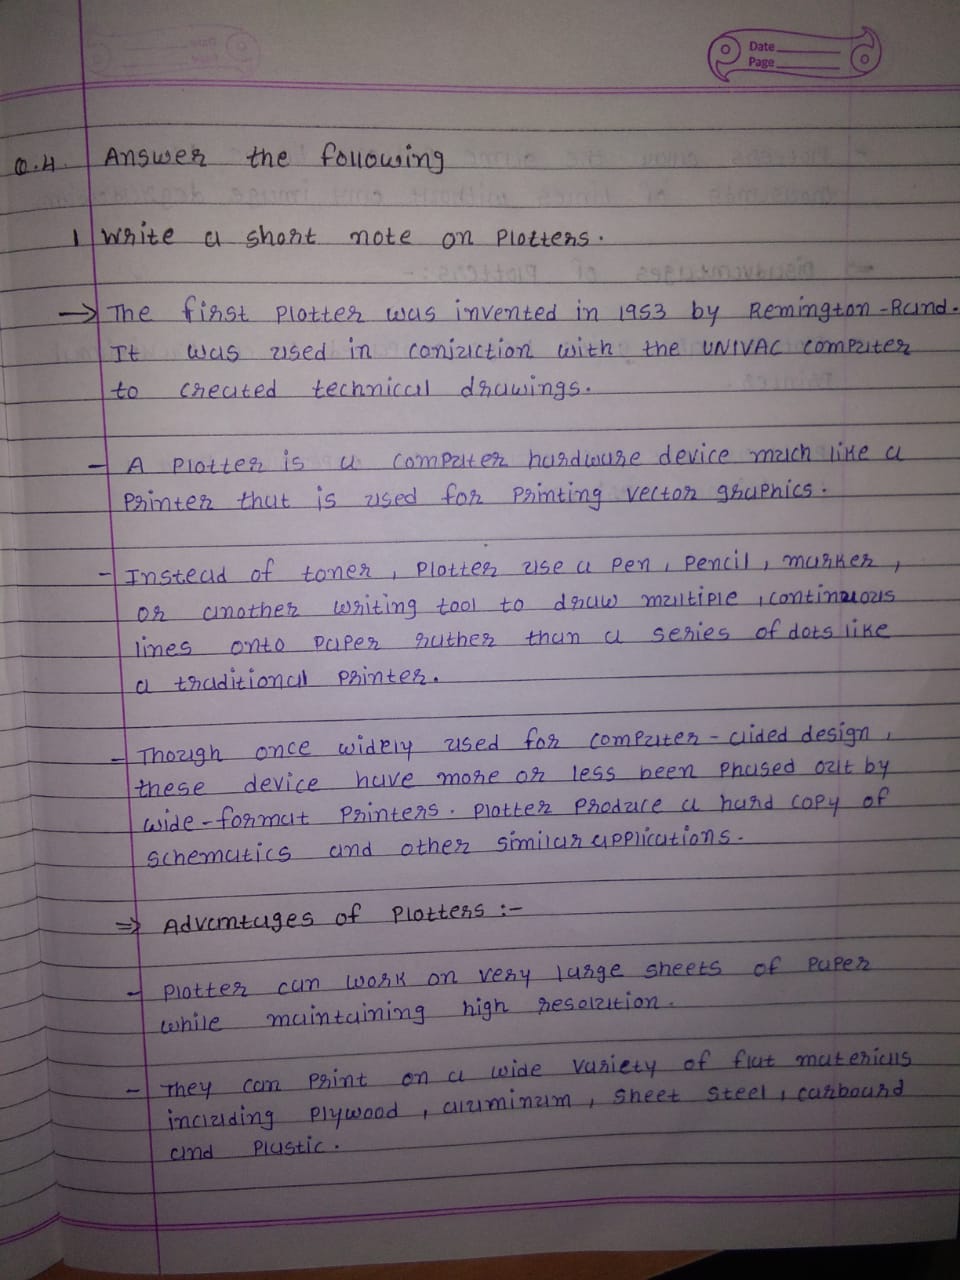 Date
Page
Q.4. Answer the following
1 Write a short note on Plotters.
→ The first Plotter was invented in 1953 by Remington-Rand.
It was used in conjuction with the UNIVAC computer
to created technical drawings.
- A Plotter is a computer hardware device much like a
Printer that is used for Printing vector graphics.
- Instead of toner, Plotter use a pen, pencil, marker,
or another writing tool to draw multiple, continuous
lines onto paper rather than a series of dots like
a traditional printer.
- Though once widely used for computer-aided design,
these device have more or less been phased out by
wide-format printers. Plotter produce a hard copy of
schematics and other similar applications.
⇒ Advantages of Plotters :-
- Plotter can work on very large sheets of paper
while maintaining high resolution.
- They can print on a wide variety of flat materials
including plywood, aluminum, sheet steel, carboard
and plastic.